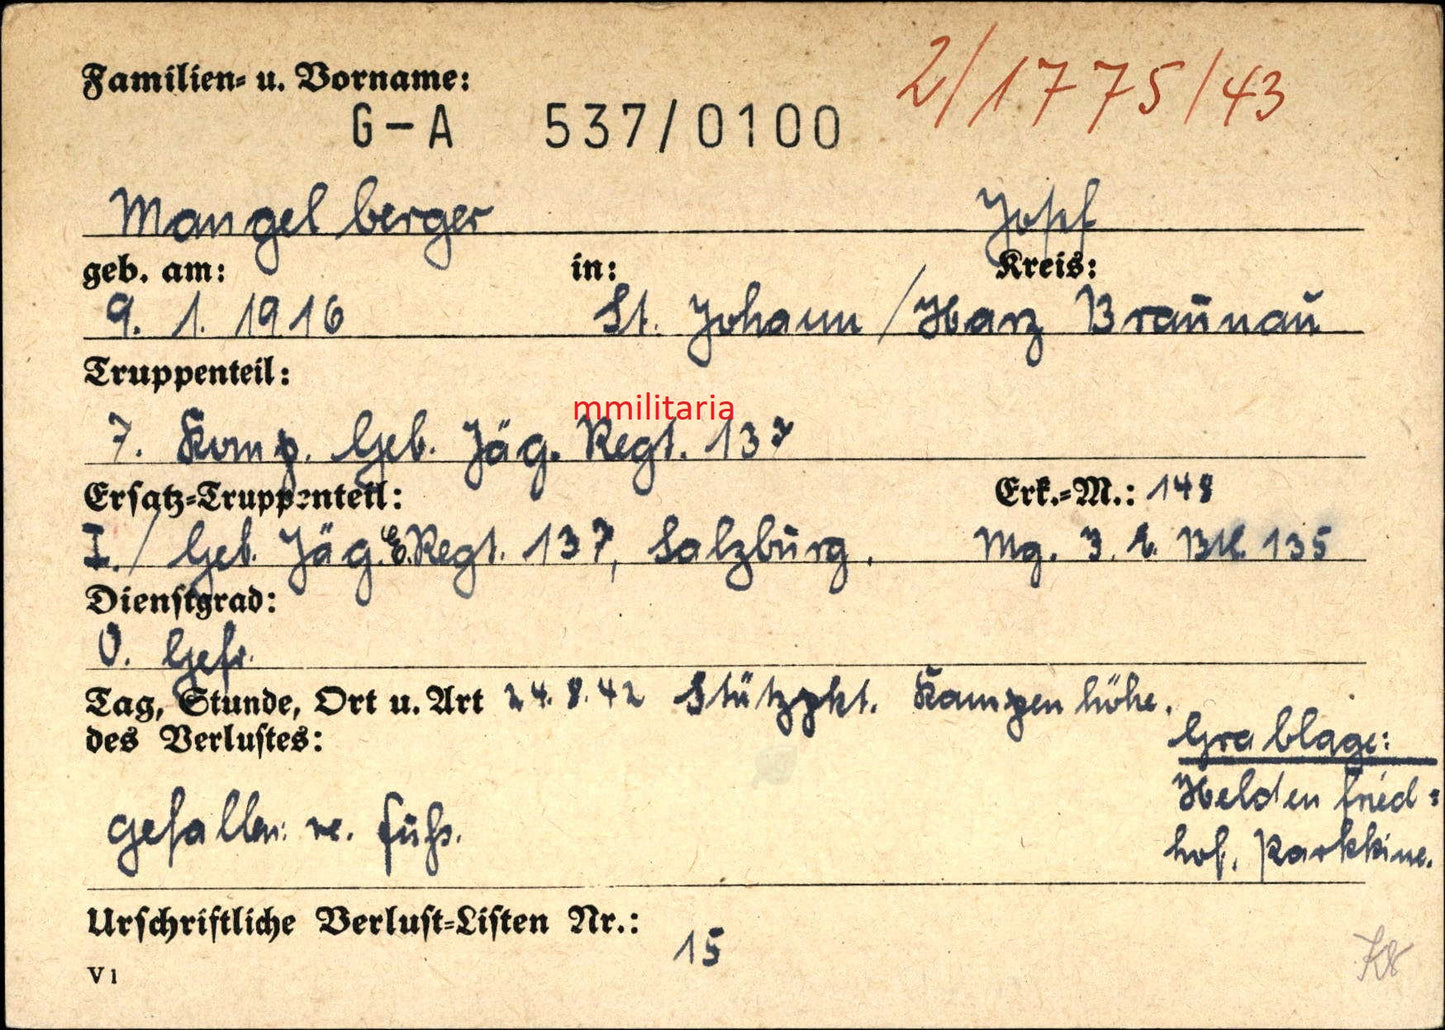 Familien- u. Vorname:
2/1775/43
G-A 537/0100
Mangelberger Josef
geb. am: in: Kreis:
9. 1. 1916 St. Johann / Harz Braunau
Truppenteil:
mmilitaria
7. Komp. Geb. Jäg. Regt. 137
Ersatz-Truppenteil: Erk.-M.: 148
I. / Geb. Jäg. E. Regt. 137, Salzburg. Mg. 3. E. Btl. 135
Dienstgrad:
O. Gefr.
Tag, Stunde, Ort u. Art 24.8.42 Stützpkt. Kampenhöhe.
des Verlustes:
Grablage:
Heldenfried-
hof. Parkkine.
gefallen: re. Fuß.
Urschriftliche Verlust-Listen Nr.:
15
V 1